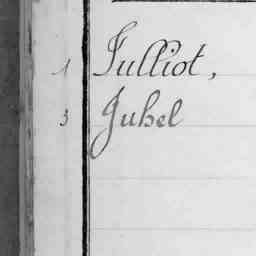 1 Julliot,
3 Juhel